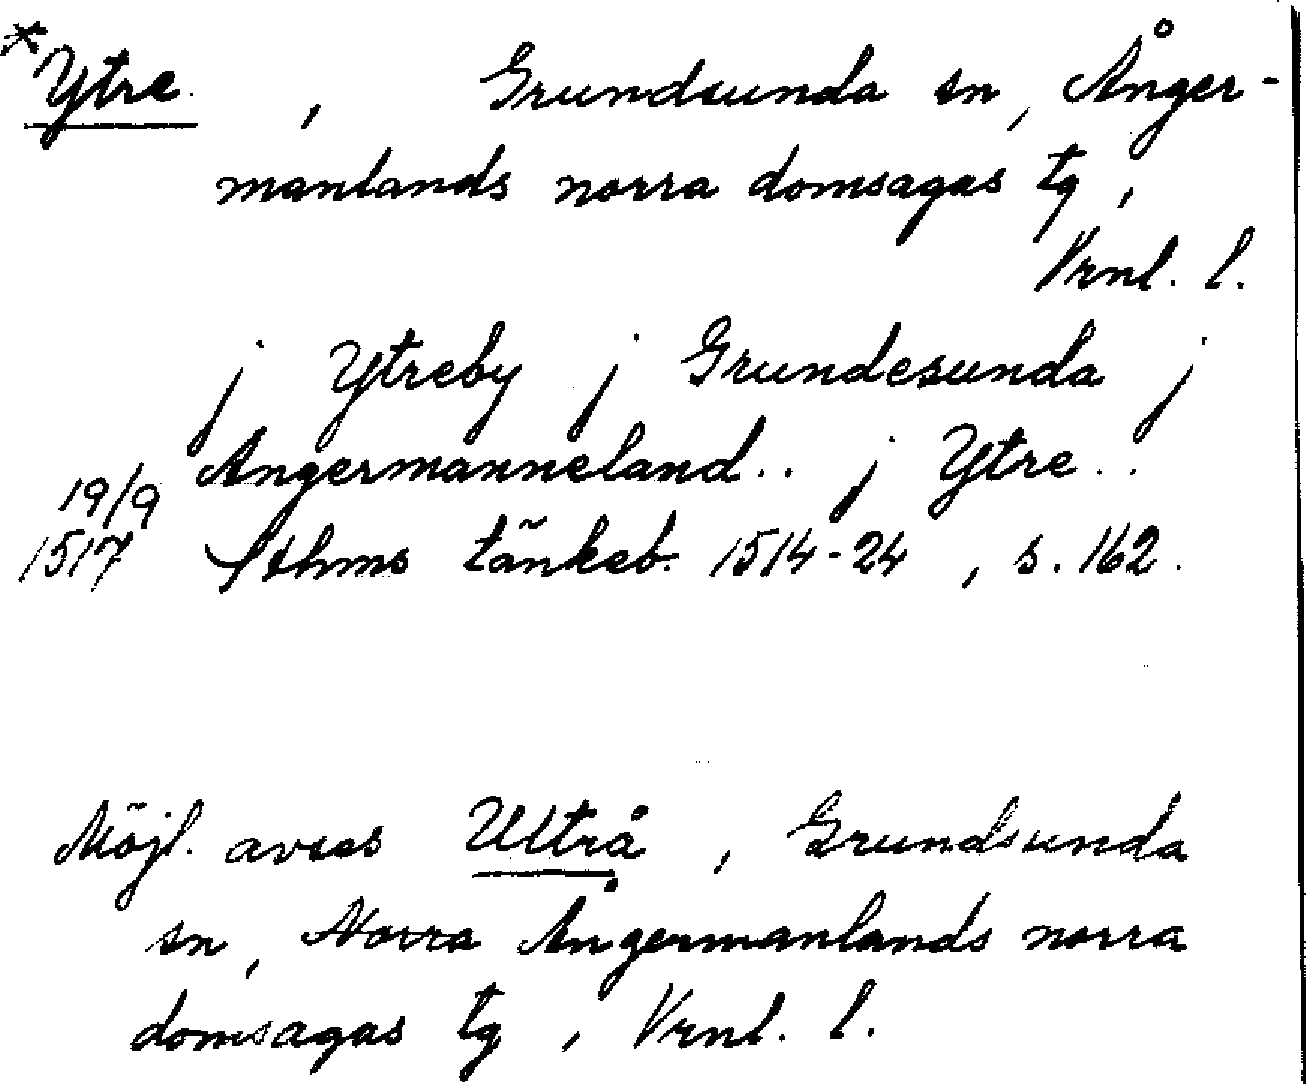 *Ytre , Grundsunda sn, Ånger-
manlands norra domsagas tg,
Vrnl. l.
j Ytreby j Grundesunda j
Angermanneland.. j Ytre..
19/9
1517 Sthms tänkeb. 1514-24, s. 162.
Möjl. avses Ultrå, Grundsunda
sn, Norra Ångermanlands norra
domsagas tg, Vrnl. l.